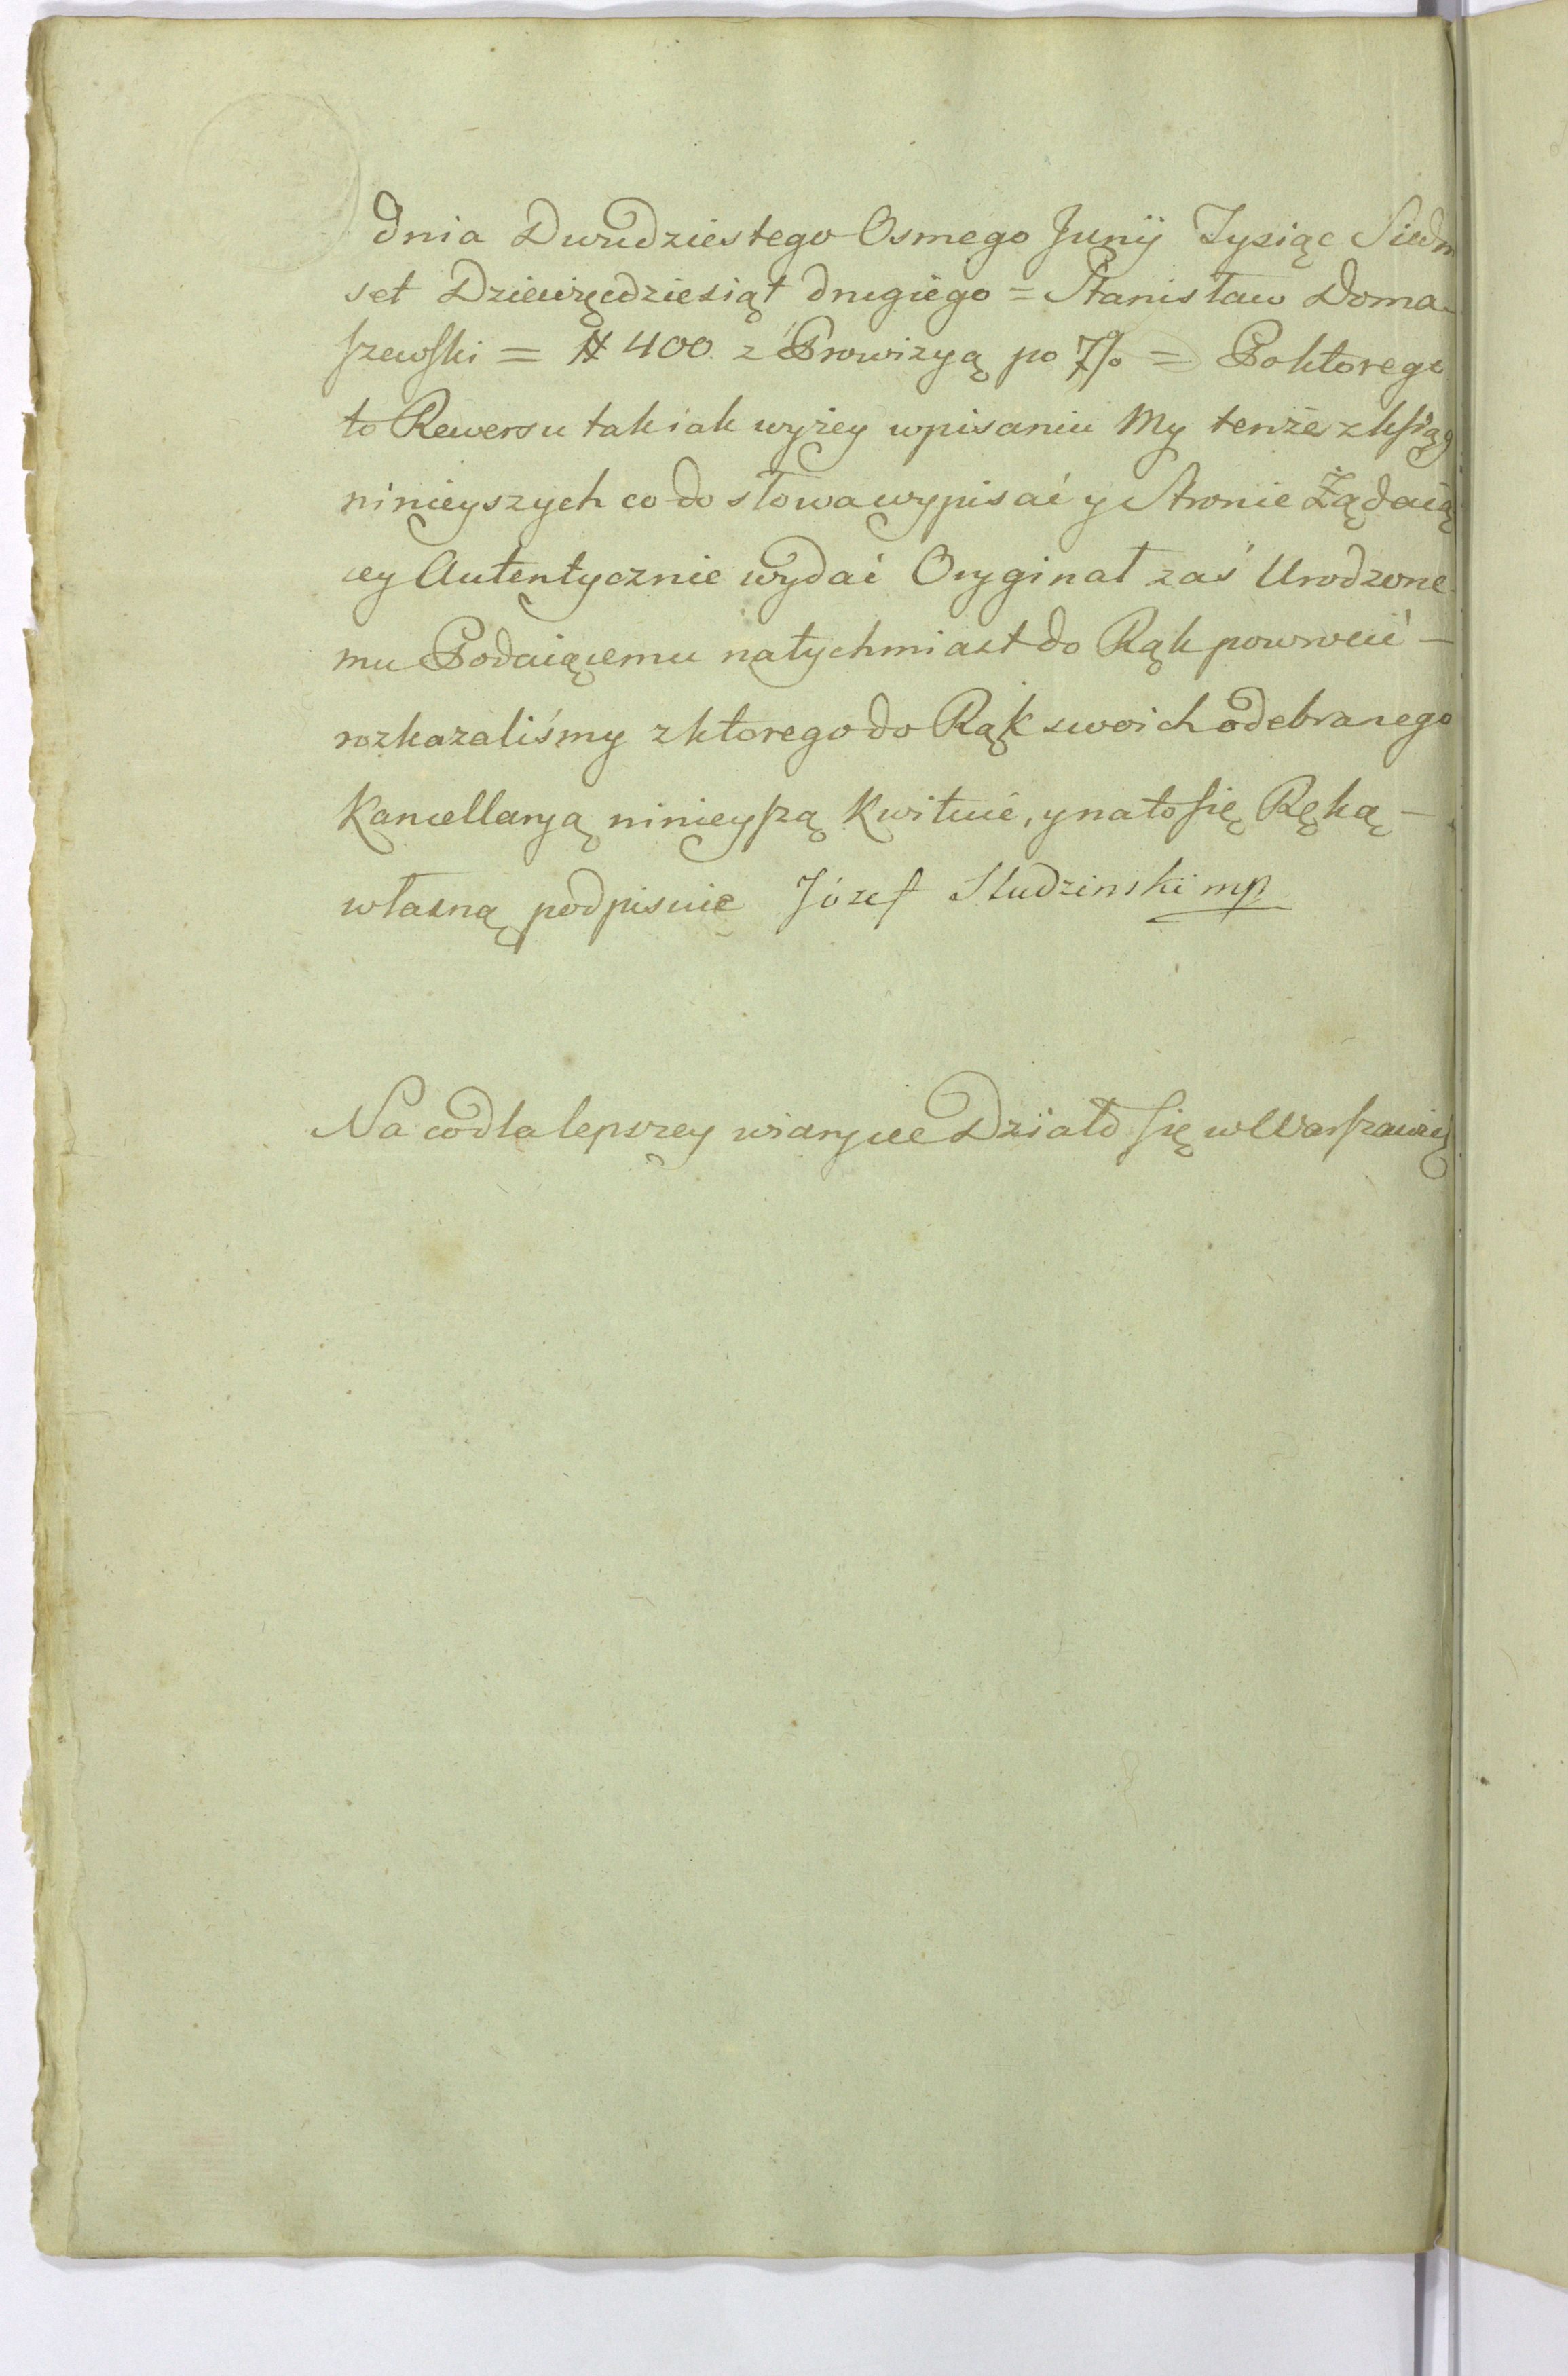 Dnia Dwudziestego Osmego Junij Tysiąc Siedm
set Dziewięcdziesiąt drugiego = Stanisław Doma-
szewski = # 400. z Prowizyą po 7% = Poktorego
to Rewersu tak iak wyżey wpisaniu My tenże z ksiąg
ninieyszych co do słowa wypisać y Stronie Żądaią
cey Autentycznie wydać Oryginał zaś Urodzone-
mu Podaiącemu natychmiast do Rąk powrocić —
rozkazaliśmy z ktorego do Rąk swoich odebranego
Kancellaryą ninieyszą Kwituie, y na to się Ręką —
własną podpisuie Józef Studzinski mp
Na co dla lepszey wiary etc Działo się w Warszawie